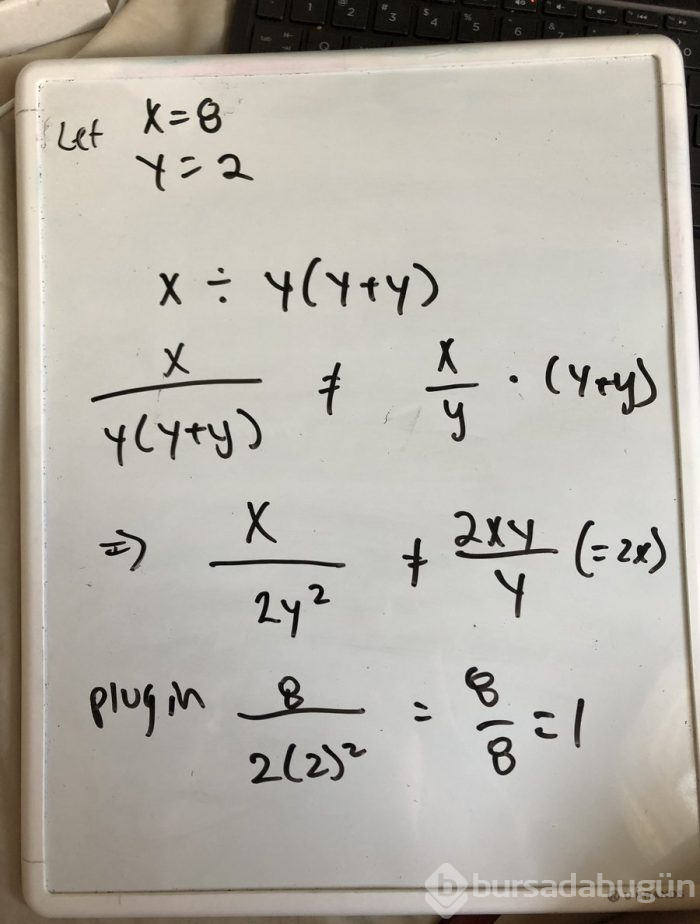 Let x = 8
y = 2
x ÷ y(y+y)
x / y(y+y) ≠ x / y · (y+y)
⇒ x / 2y² ≠ 2xy / y (=2x)
plug in 8 / 2(2)² = 8 / 8 = 1
b bursadabugün